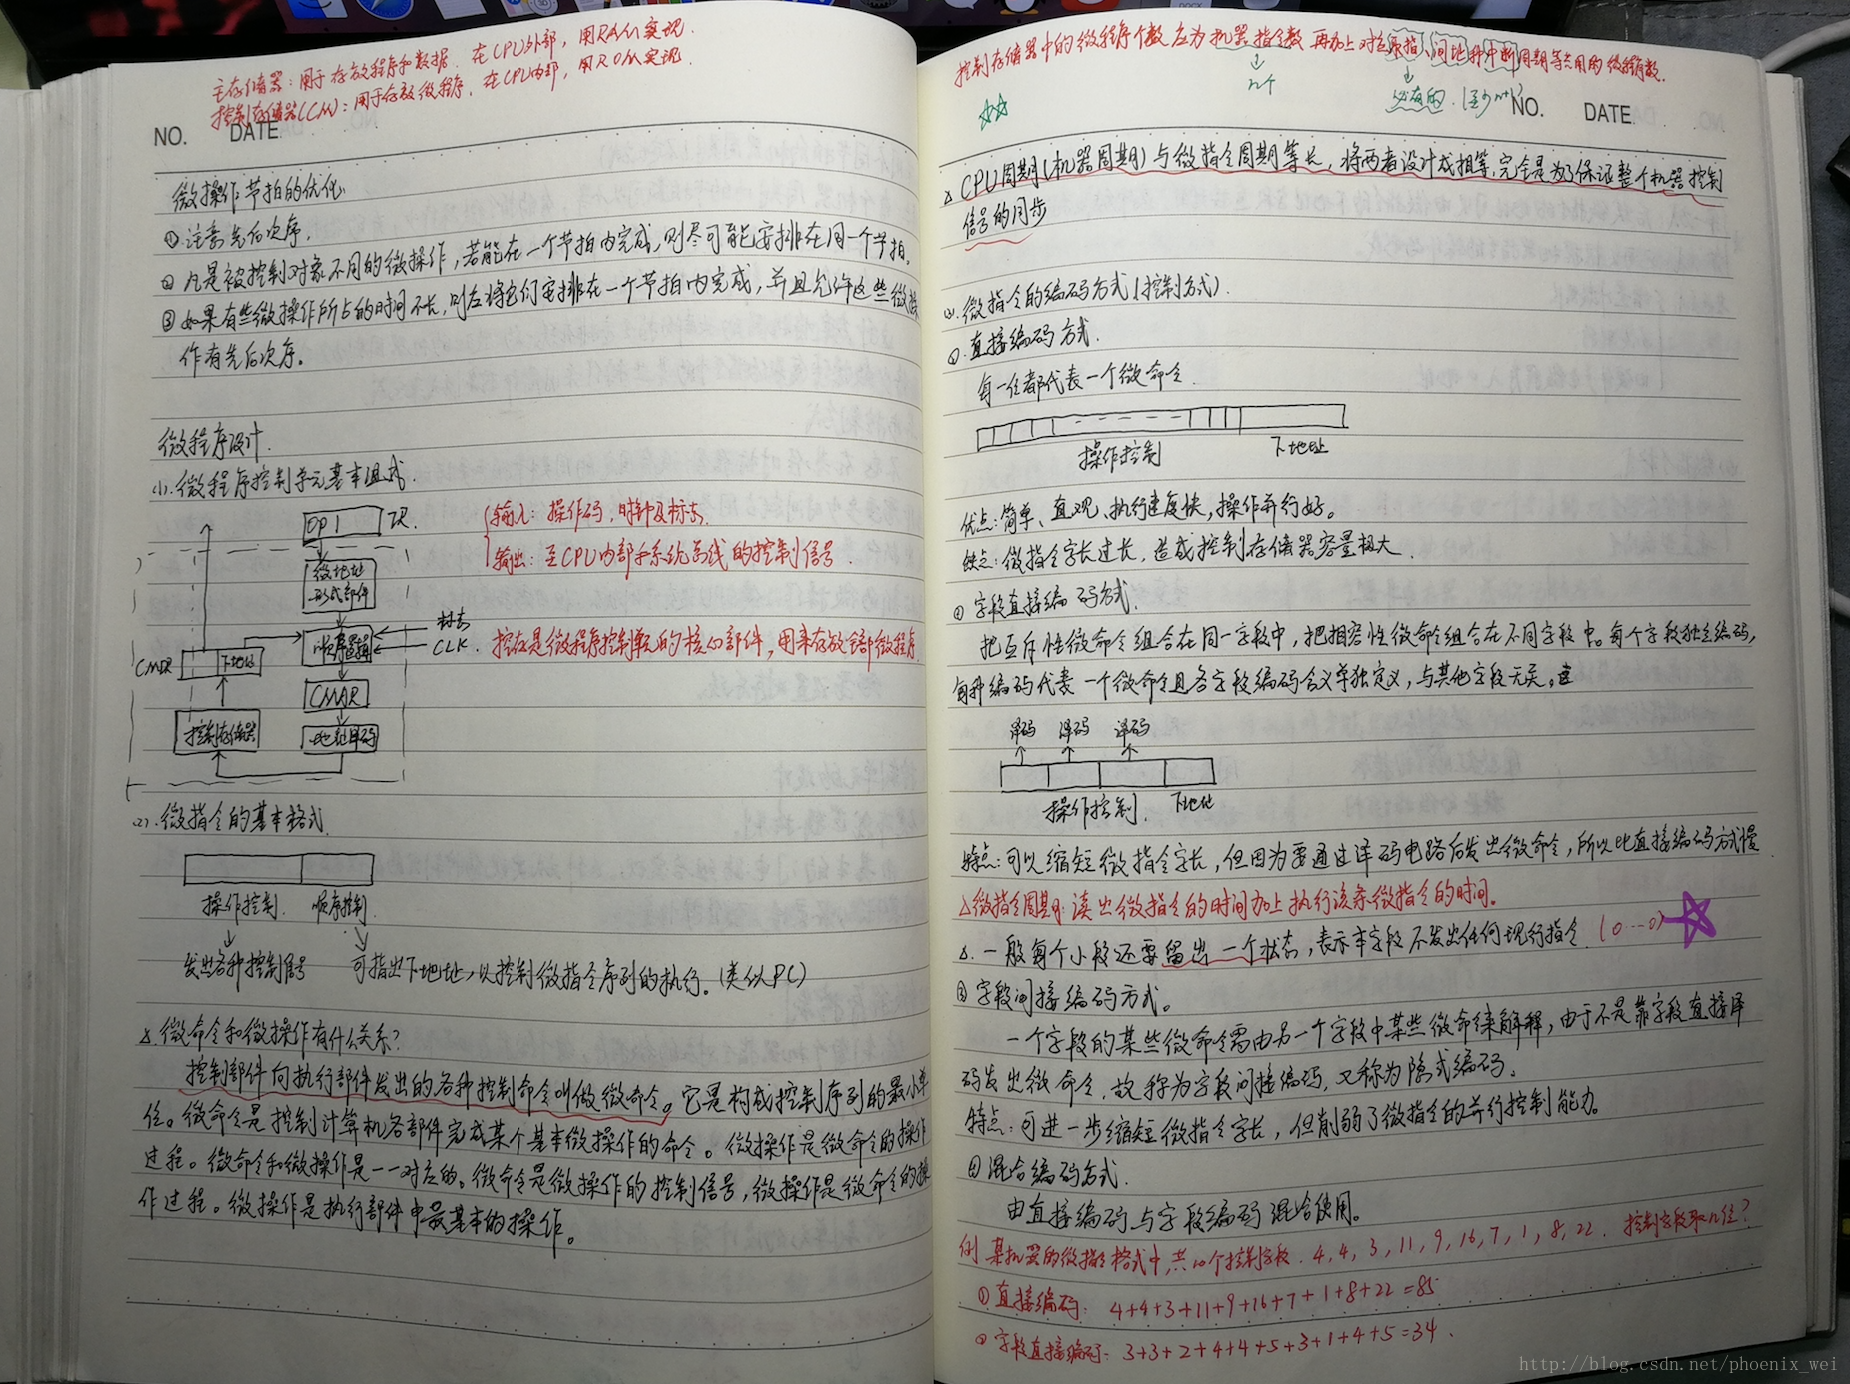 主存储器：用于存放程序和数据．在CPU外部，用RAM实现．
控制存储器(CM)：用于存放微程序．在CPU内部，用ROM实现．
NO. DATE
微操作节拍的优化
①注意先后次序．
②凡是被控制对象不同的微操作，若能在一个节拍内完成，则尽可能安排在同一个节拍．
③如果有些微操作所占的时间不长，则应将它们安排在一个节拍内完成，并且允许这些微操
作有先后次序。
微程序设计．
(1).微程序控制单元基本组成．
OP IR
微地址
形成部件
顺序逻辑
标志
CLK
CMDR 下地址
CMAR
控制存储器
地址译码
输入：操作码，时钟及标志．
输出：至CPU内部和系统总线的控制信号．
控存是微程序控制器的核心部件，用来存放全部微程序
(2).微指令的基本格式．
操作控制． 顺序控制
发出各种控制信号 可指出下地址，以控制微指令序列的执行。(类似PC)
△微命令和微操作有什么关系？
控制部件向执行部件发出的各种控制命令叫做微命令。它是构成控制序列的最小单
位。微命令是控制计算机各部件完成某个基本微操作的命令。微操作是微命令的操作
过程。微命令和微操作是一一对应的。微命令是微操作的控制信号，微操作是微命令的操
作过程。微操作是执行部件中最基本的操作。
控制存储器中的微程序个数应为机器指令数再加上对应取指、间址和中断周期等公用的微程序数．
n个
必有的．(至少n+1)
NO. DATE
△CPU周期(机器周期)与微指令周期等长，将两者设计成相等，完全是为了保证整个机器控制
信号的同步
(3).微指令的编码方式(控制方式)．
①.直接编码方式．
每一位都代表一个微命令．
操作控制 下地址
优点：简单、直观、执行速度快，操作并行好。
缺点：微指令字长过长，造成控制存储器容量极大．
②字段直接编码方式．
把互斥性微命令组合在同一字段中，把相容性微命令组合在不同字段中。每个字段独立编码，
每种编码代表一个微命令且各字段编码含义单独定义，与其他字段无关。
译码 译码 译码
操作控制． 下地址
特点：可以缩短微指令字长，但因为要通过译码电路后发出微命令，所以比直接编码方式慢
△微指令周期：读出微指令的时间加上执行该条微指令的时间。
△.一般每个小段还要留出一个状态，表示本字段不发出任何现行指令．(0…0)
③字段间接编码方式。
一个字段的某些微命令需由另一个字段中某些微命令来解释，由于不是靠字段直接译
码发出微命令，故称为字段间接编码，又称为隐式编码．
特点：可进一步缩短微指令字长，但削弱了微指令的并行控制能力。
④混合编码方式．
由直接编码与字段编码混合使用。
例 某机器的微指令格式中，共10个控制字段．4，4，3，11，9，16，7，1，8，22．控制字段取几位？
①直接编码：4+4+3+11+9+16+7+1+8+22=85
②字段直接编码：3+3+2+4+4+5+3+1+4+5=34．
http://blog.csdn.net/phoenix_wei